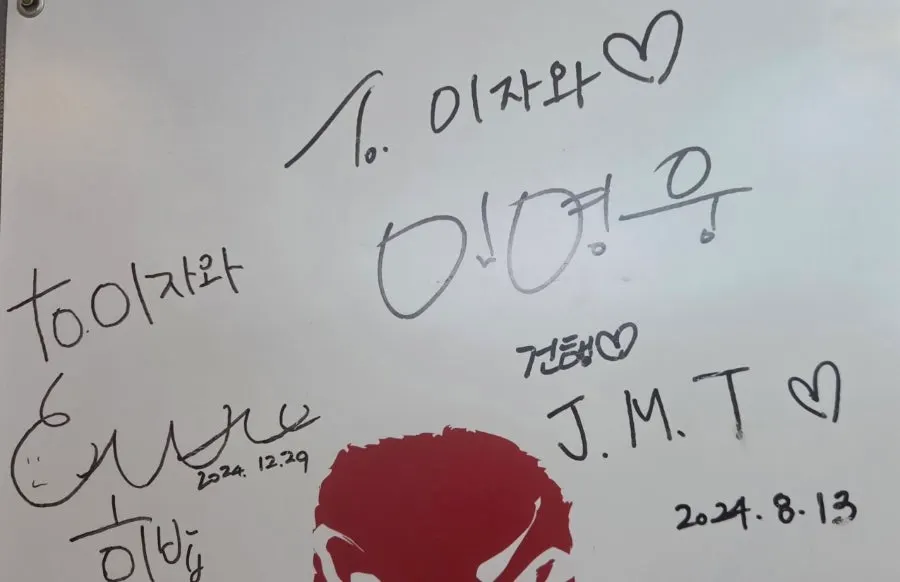 To. 이자와♡
임영웅
건행♡
J.M.T ♡
2024.8.13
to.이자와
2024.12.29
히밥